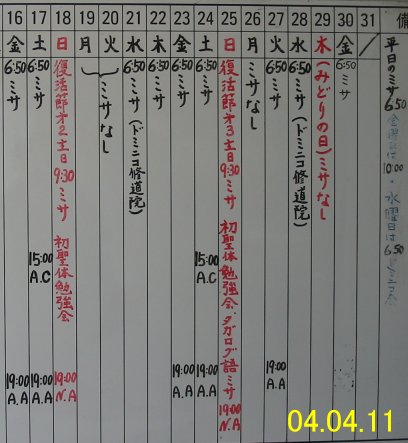 16 金 6:50 ミサ 19:00 A.A
17 土 6:50 ミサ 15:00 A.C 19:00 A.A
18 日 復活節才2主日 9:30 ミサ 初聖体勉強会 19:00 N.A
19 月
20 火 ミサなし
21 水 6:50 ミサ (ドミニコ修道院)
22 木 6:50 ミサ
23 金 6:50 ミサ 19:00 A.A
24 土 6:50 ミサ 15:00 A.C 19:00 A.A
25 日 復活節才3主日 9:30 ミサ 初聖体勉強会 タガログ語ミサ 19:00 N.A
26 月 ミサなし
27 火 6:50 ミサ 19:00 A.A
28 水 6:50 ミサ (ドミニコ修道院)
29 木 (みどりの日) ミサなし
30 金 6:50 ミサ
31 /
備
平日のミサ 6:50
金曜日は 10:00・水曜日は 6:50
04.04.11